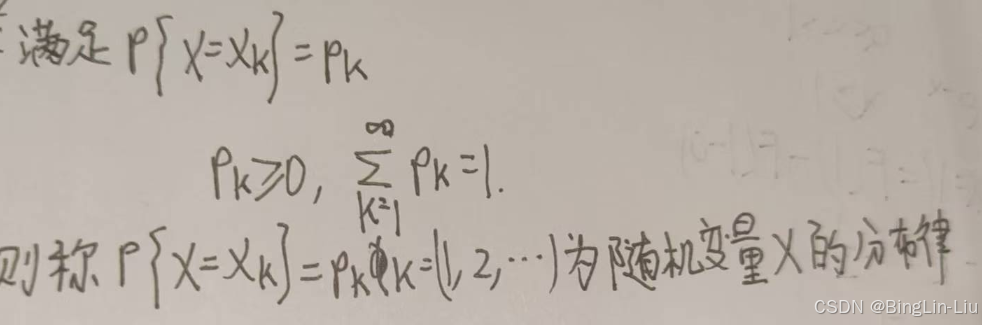 满足 P{X=Xk}=Pk
Pk≥0, ∑_{k=1}^{∞} Pk=1.
则称 P{X=Xk}=Pk k=(1,2,…)为随机变量X的分布律
CSDN @BingLin-Liu